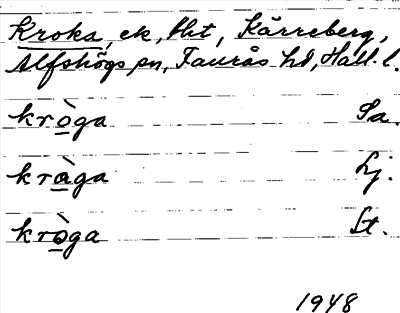 Kroka, ek, tht, Kärreberg,
Alfshögs sn, Faurås hd, Hall. l.
kròga Sa.
kràga Lj.
kròga St.
1948